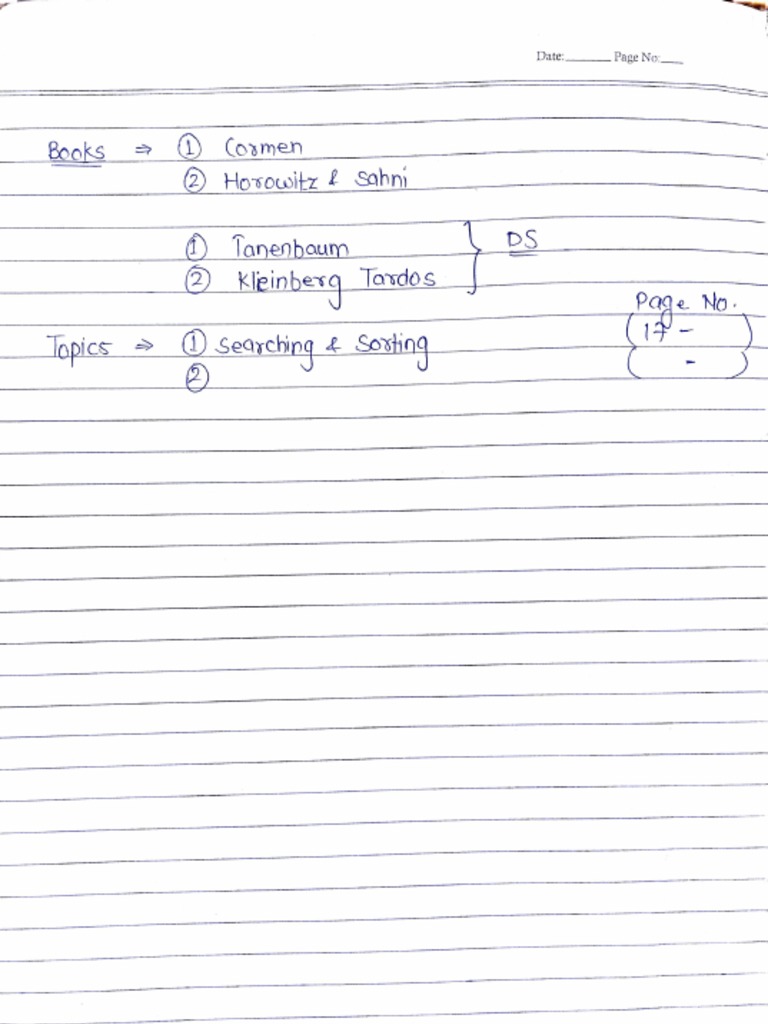 Date:_______ Page No:___
Books ⇒ ① Cormen
② Horowitz & Sahni
① Tanenbaum } DS
② Kleinberg Tardos
Page No.
Topics ⇒ ① Searching & Sorting (17 - )
② ( - )